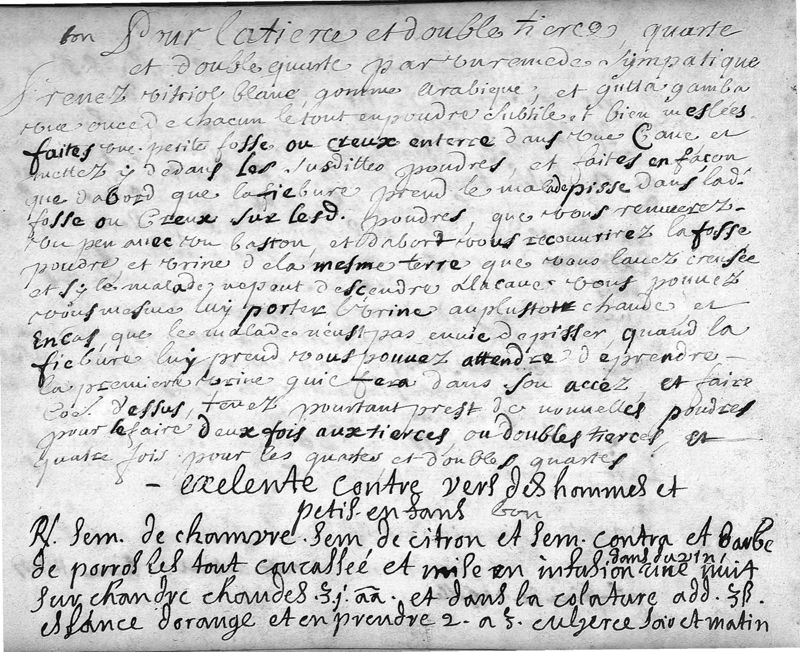 bon Pour la tierce et double tierce, quarte
et double quarte par un remede sympatique
Prenez vitriol blanc, gomme arabique, et gutta gamba
une once de chacun le tout en poudre subtile et bien meslées.
faites une petite fosse ou creux en terre dans une Cave et
mettez y dedans les susdittes poudres, et faites en façon
que d'abord que la fiebure prend le malade pisse dans lad.
fosse ou Creux sur lesd. poudres, que vous remuerez
un peu avec un baston, et d'abord vous recouvrirez la fosse
poudre et urine de la mesme terre que vous l'avez creusée
et sy le malade ne peut descendre a la cave vous pouvez
vous mesme luy porter l'urine au plustost chaude et
En cas, que le malade n'eust pas envie de pisser, quand la
fiebure luy prend vous pouvez attendre de prendre
la premiere urine qu'il fera dans son accez, et faire
Co͞e dessus, tenez pourtant prest de nouvelles poudres
pour le faire deux fois aux tierces, ou doubles tierces, et
quatre fois pour les quartes et doubles quartes
– exelente contre vers des hommes et
petis enfans bon
R/. sem. de chamvre. sem de citron et sem. contra et barbe
de porros les tout concassée et mise en infusion dans du vin une nuit
sur chandre chaudes. ʒ.j. aa. et dans la colature add. ʒß.
essance d'orange et en prendre 2. a 3. culierée soir et matin